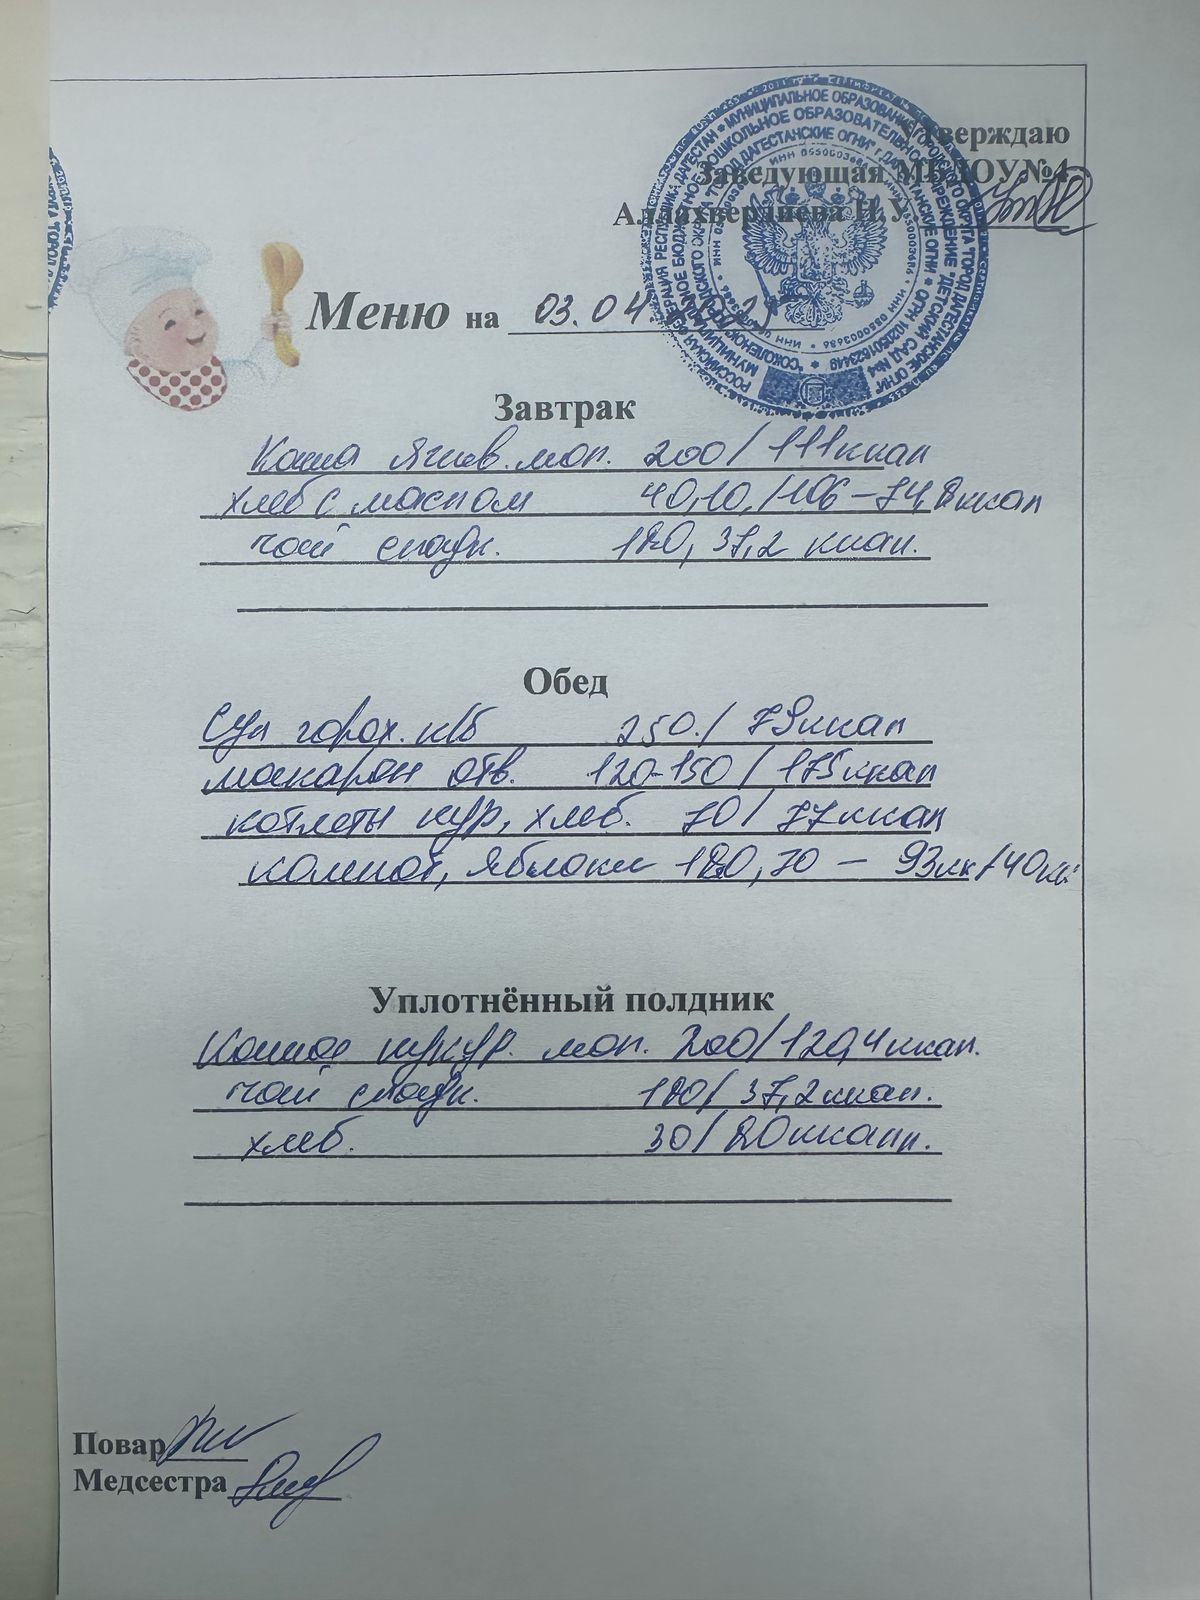 Утверждаю
Заведующая МБДОУ№4
Аллахвердиева Н.У
Меню на 03.04.2025
Завтрак
Каша ячнев. мол. 200/ 111ккал
хлеб с маслом 40,10,/106-74,8ккал
чай сладк. 180, 37,2 ккал.
Обед
Суп горох. к/б 250./ 79ккал
макарон отв. 120-150/ 175ккал
котлеты кур, хлеб. 70/ 77ккал
компот, яблоки 180, 70 – 93кк/40кк
Уплотнённый полдник
Каша кукур. мол. 200/129,4ккал.
чай сладк. 180/ 37,2ккал.
хлеб. 30/ 80ккал.
Повар
Медсестра